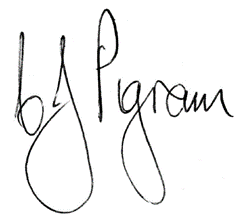 b J Pigram